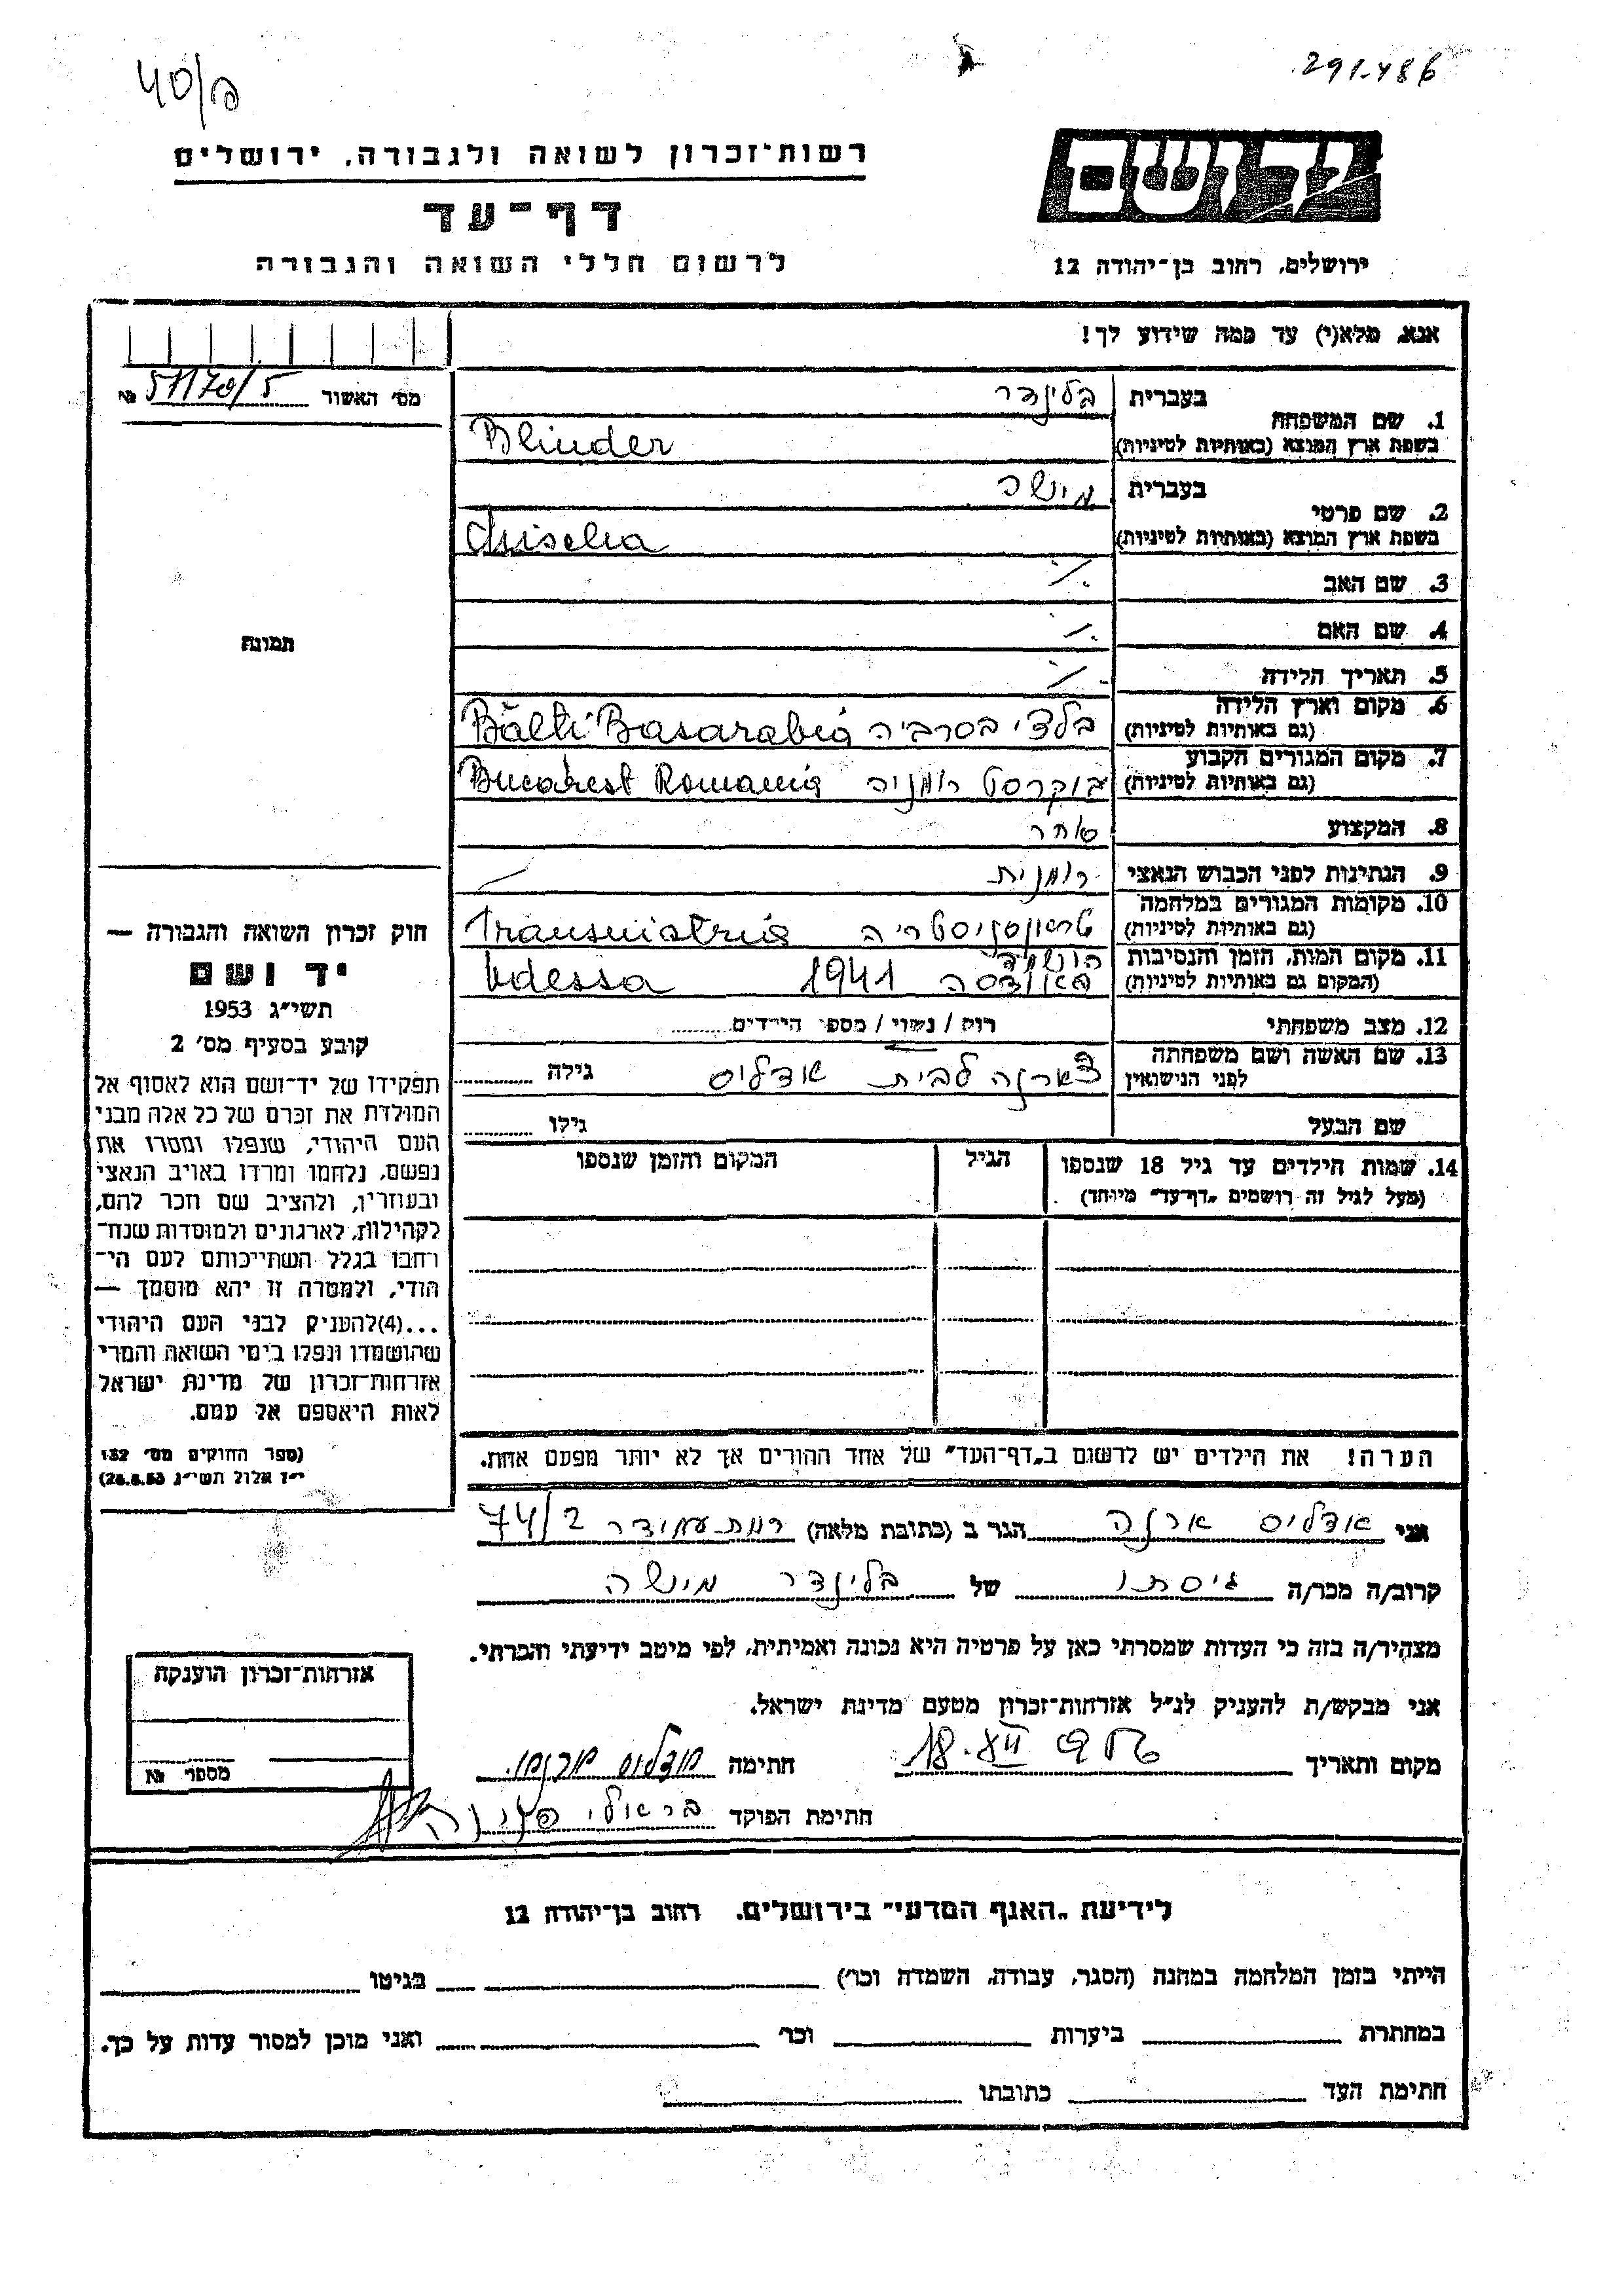 40/ם
291-486
רשות־זכרון לשואה ולגבורה, ירושלים
דף־עד
לרשום חללי השואה והגבורה
יד ושם
ירושלים, רחוב בן־יהודה 12
אנא, מלא(י) עד כמה שידוע לך!
מס' האשור 51170/5 №
1. שם המשפחה
בעברית בלינדר
בשפת ארץ המוצא (באותיות לטיניות) Blinder
2. שם פרטי
בעברית מישה
בשפת ארץ המוצא (באותיות לטיניות) Mischa
3. שם האב
4. שם האם
5. תאריך הלידה
6. מקום וארץ הלידה
(גם באותיות לטיניות) בלצי בסרביה Bălti Basarabia
7. מקום המגורים הקבוע
(גם באותיות לטיניות) בוקרסט רומניה Bucarest Romania
8. המקצוע סוחר
9. הנתינות לפני הכבוש הנאצי רומנית
10. מקומות המגורים במלחמה
(גם באותיות לטיניות) טראנסניסטריה Transnistria
11. מקום המות, הזמן והנסיבות
(המקום גם באותיות לטיניות) באודסה 1941 Odessa
12. מצב משפחתי רווק / נשוי / מספר הילדים
13. שם האשה ושם משפחתה
לפני הנישואין לבית אדליס גילה
שם הבעל גילו
14. שמות הילדים עד גיל 18 שנספו
(מעל לגיל זה רושמים "דף־עד" מיוחד)
הגיל
המקום והזמן שנספו
הערה! את הילדים יש לרשום ב"דף־העד" של אחד ההורים אך לא יותר מפעם אחת.
תמונה
חוק זכרון השואה והגבורה —
יד ושם
תשי"ג 1953
קובע בסעיף מס' 2
תפקידו של יד־ושם הוא לאסוף אל
המולדת את זכרם של כל אלה מבני
העם היהודי, שנפלו ומסרו את
נפשם, נלחמו ומרדו באויב הנאצי
ובעוזריו, ולהציב שם וזכר להם,
לקהילות, לארגונים ולמוסדות שנח־
רבו בגלל השתייכותם לעם הי־
הודי, ולמטרה זו יהא מוסמך —
...(4)להעניק לבני העם היהודי
שהושמדו ונפלו בימי השואה והמרי
אזרחות־זכרון של מדינת ישראל
לאות היאספם אל עמם.
(ספר החוקים מס' 132
י"ז אלול תשי"ג 28.8.53)
אני אדליס ארנה הגר ב (כתובת מלאה) רמת עמידר 74/2
קרוב/ה מכר/ה גיסתו של בלינדר מישה
מצהיר/ה בזה כי העדות שמסרתי כאן על פרטיה היא נכונה ואמיתית, לפי מיטב ידיעתי והכרתי.
אני מבקש/ת להעניק לנ"ל אזרחות־זכרון מטעם מדינת ישראל.
מקום ותאריך 18.XII 956 חתימה
חתימת הפוקד
אזרחות־זכרון הוענקה
מספר №
לידיעת "האגף המדעי" בירושלים, רחוב בן־יהודה 12
הייתי בזמן המלחמה במחנה (הסגר, עבודה, השמדה וכו') בגיטו
במחתרת ביערות וכו' ואני מוכן למסור עדות על כך.
חתימת העד כתובתו